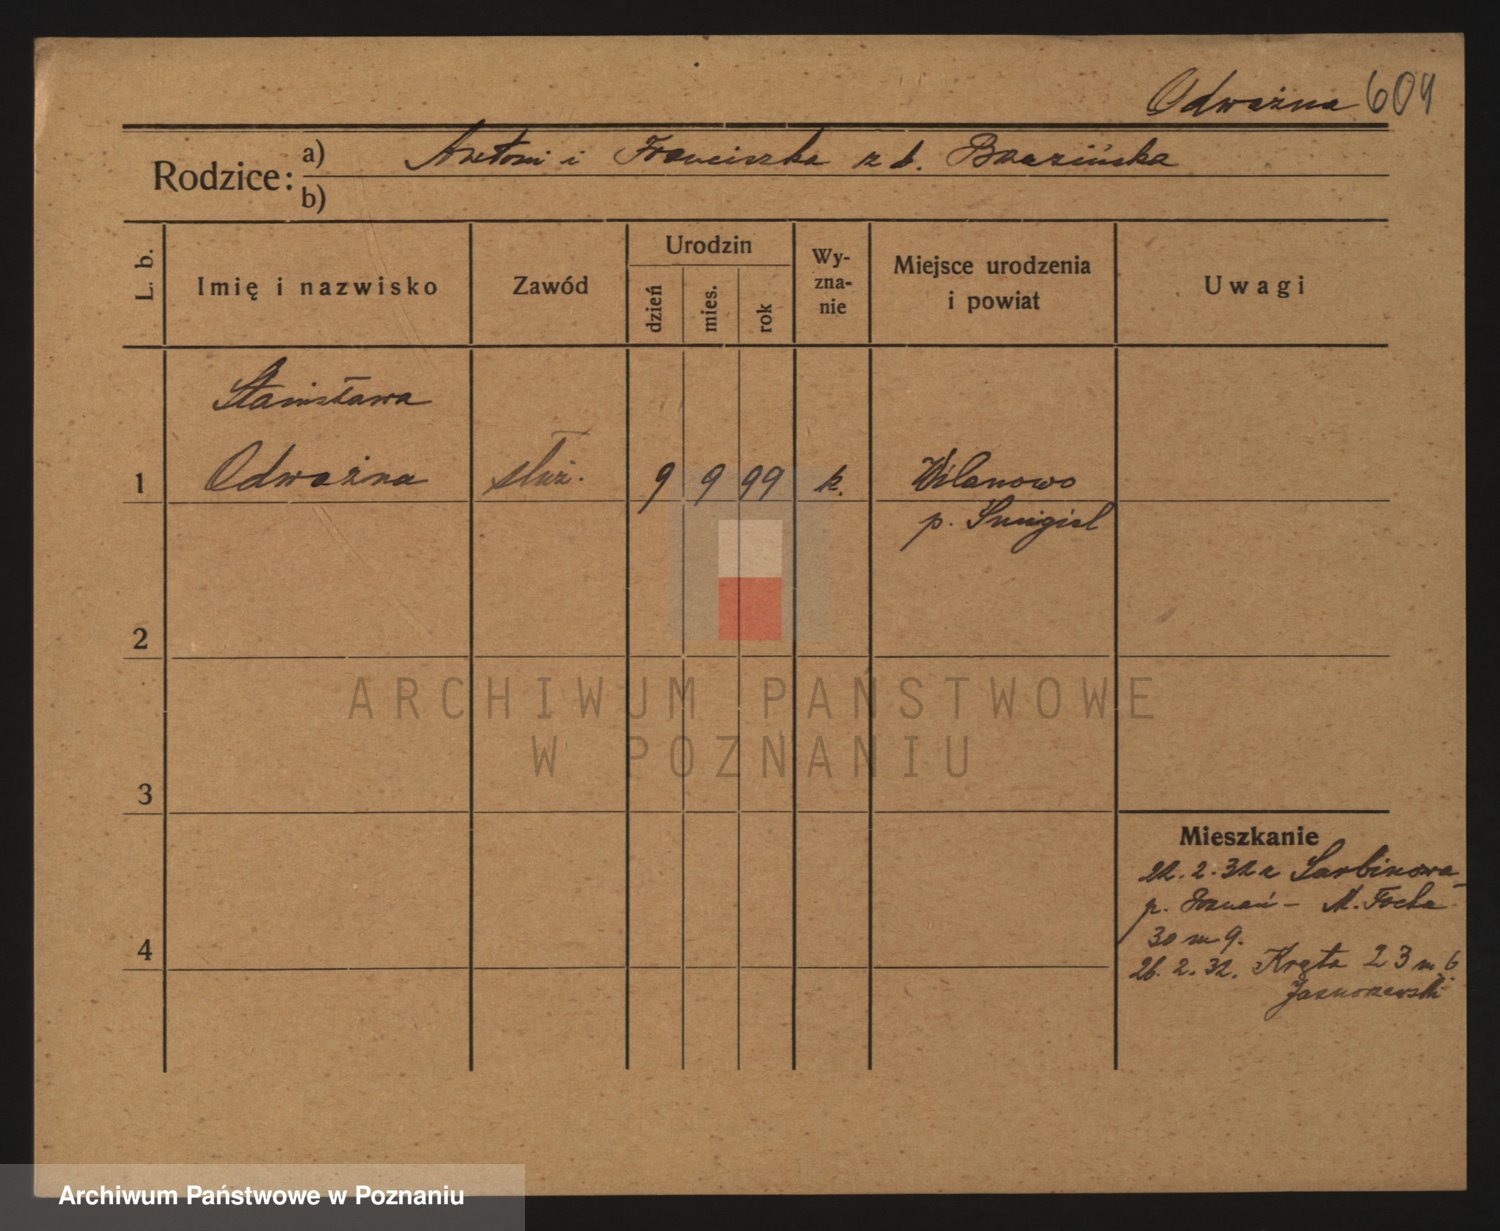 Odważna 604
Rodzice: a) Antoni i Franciszka z d. Brazińska
b)
L. b.
Imię i nazwisko
Zawód
Urodzin
dzień
mies.
rok
Wy-
zna-
nie
Miejsce urodzenia
i powiat
Uwagi
Stanisława
1 Odważna służ. 9 9 99 k. Wilanowo
p. Śmigiel
2
3
4
ARCHIWUM PAŃSTWOWE
W POZNANIU
Mieszkanie
22.2.32 z Sarbinowa
p. Poznań - M. Focha
30 m 9.
26.2.32. Kręta 23 m. 6
Archiwum Państwowe w Poznaniu